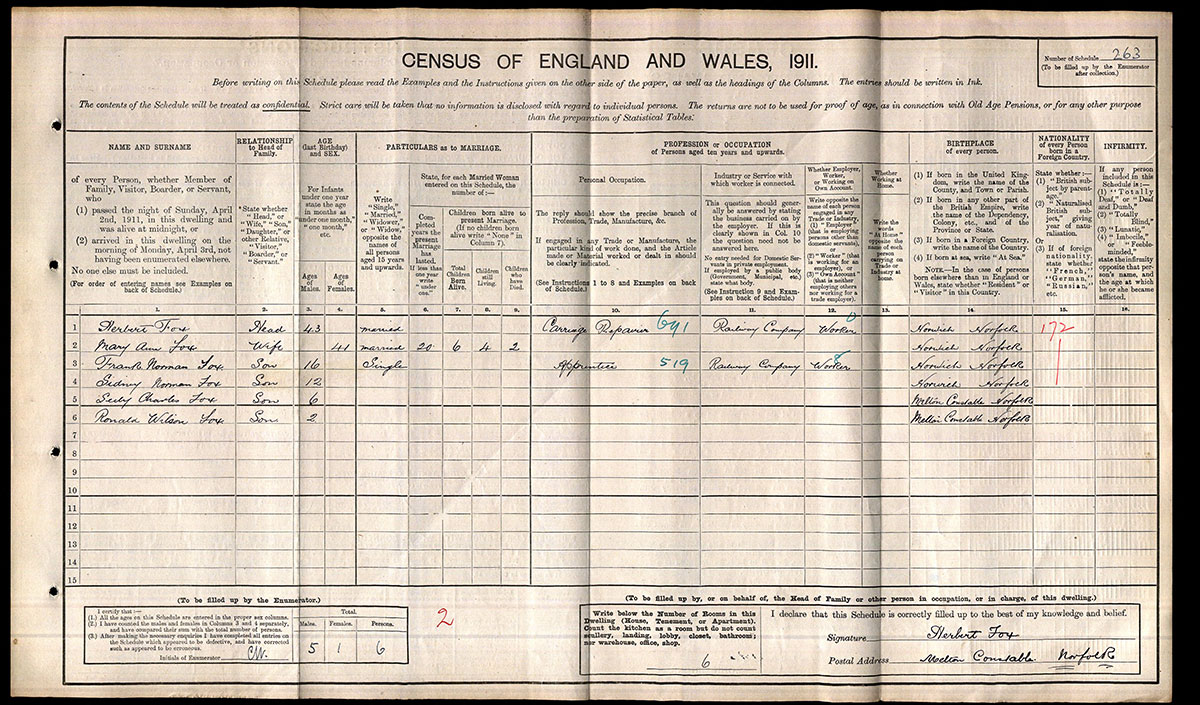 CENSUS OF ENGLAND AND WALES, 1911.
Number of Schedule 263
(To be filled up by the Enumerator
after collection.)
Before writing on this Schedule please read the Examples and the Instructions given on the other side of the paper, as well as the headings of the Columns. The entries should be written in Ink.
The contents of the Schedule will be treated as confidential. Strict care will be taken that no information is disclosed with regard to individual persons. The returns are not to be used for proof of age, as in connection with Old Age Pensions, or for any other purpose
than the preparation of Statistical Tables.
NAME AND SURNAME
of every Person, whether Member of
Family, Visitor, Boarder, or Servant,
who
(1) passed the night of Sunday, April
2nd, 1911, in this dwelling and
was alive at midnight, or
(2) arrived in this dwelling on the
morning of Monday, April 3rd, not
having been enumerated elsewhere.
No one else must be included.
(For order of entering names see Examples on
back of Schedule.)
RELATIONSHIP
to Head of
Family.
State whether
"Head," or
"Wife," "Son,"
"Daughter," or
other Relative,
"Visitor,"
"Boarder," or
"Servant."
AGE
(last Birthday)
and SEX.
For Infants
under one year
state the age
in months as
"under one month,"
"one month,"
etc.
Ages
of
Males.
Ages
of
Females.
PARTICULARS as to MARRIAGE.
Write
"Single,"
"Married,"
"Widower,"
or "Widow,"
opposite the
names of
all persons
aged 15 years
and upwards.
State, for each Married Woman
entered on this Schedule, the
number of:—
Completed
years the
present
Marriage
has
lasted.
If less than
one year
write
"under
one."
Children born alive to
present Marriage.
(If no children born
alive write "None" in
Column 7).
Total
Children
Born
Alive.
Children
still
Living.
Children
who
have
Died.
PROFESSION or OCCUPATION
of Persons aged ten years and upwards.
Personal Occupation.
The reply should show the precise branch of
Profession, Trade, Manufacture, &c.
If engaged in any Trade or Manufacture, the
particular kind of work done, and the Article
made or Material worked or dealt in should
be clearly indicated.
(See Instructions 1 to 8 and Examples on back
of Schedule.)
Industry or Service with
which worker is connected.
This question should generally
be answered by stating
the business carried on by
the employer. If this is
clearly shown in Col. 10
the question need not be
answered here.
No entry needed for Domestic Servants
in private employment.
If employed by a public body
(Government, Municipal, etc.)
state what body.
(See Instruction 9 and Examples
on back of Schedule.)
Whether Employer,
Worker,
or Working on
Own Account.
Write opposite the
name of each person
engaged in any
Trade or Industry,
(1) "Employer"
(that is employing
persons other than
domestic servants),
or
(2) "Worker" (that
is working for an
employer), or
(3) "Own Account"
(that is neither
employing others
nor working for a
trade employer).
Whether
Working at
Home.
Write the
words
"At Home"
opposite the
name of each
person
carrying on
Trade or
Industry at
home.
BIRTHPLACE
of every person.
(1) If born in the United Kingdom,
write the name of the
County, and Town or Parish.
(2) If born in any other part of
the British Empire, write
the name of the Dependency,
Colony, etc., and of the
Province or State.
(3) If born in a Foreign Country,
write the name of the Country.
(4) If born at sea, write "At Sea."
NOTE.—In the case of persons
born elsewhere than in England or
Wales, state whether "Resident" or
"Visitor" in this Country.
NATIONALITY
of every Person
born in a
Foreign Country.
State whether:—
(1) "British subject
by parentage,"
(2) "Naturalised
British subject,"
giving
year of naturalisation.
Or
(3) If of foreign
nationality,
state whether
"French,"
"German,"
"Russian,"
etc.
INFIRMITY.
If any person
included in this
Schedule is:—
(1) "Totally
Deaf," or "Deaf
and Dumb,"
(2) "Totally
Blind,"
(3) "Lunatic,"
(4) "Imbecile,"
or "Feeble-minded,"
state the infirmity
opposite that person's
name, and
the age at which
he or she became
afflicted.
1. 2. 3. 4. 5. 6. 7. 8. 9. 10. 11. 12. 13. 14. 15. 16.
1 Herbert Fox Head 43 married Carriage Repairer 691 Railway Company Worker Norwich Norfolk 172
2 Mary Ann Fox Wife 41 married 20 6 4 2 Norwich Norfolk
3 Frank Norman Fox Son 16 Single Apprentice 519 Railway Company Worker Norwich Norfolk
4 Sidney Norman Fox Son 12 Norwich Norfolk
5 Charles Fox Son 6 Melton Constable Norfolk
6 Ronald Wilson Fox Son 2 Melton Constable Norfolk
7
8
9
10
11
12
13
14
15
(To be filled up by the Enumerator.)
I certify that:—
(1.) All the ages on this Schedule are entered in the proper sex columns.
(2.) I have counted the males and females in Columns 3 and 4 separately,
and have compared their sum with the total number of persons.
(3.) After making the necessary enquiries I have completed all entries on
the Schedule which appeared to be defective, and have corrected
such as appeared to be erroneous.
Initials of Enumerator CW.
Total.
Males. Females. Persons.
5 1 6
2
(To be filled up by, or on behalf of, the Head of Family or other person in occupation, or in charge, of this dwelling.)
Write below the Number of Rooms in this
Dwelling (House, Tenement, or Apartment).
Count the kitchen as a room but do not count
scullery, landing, lobby, closet, bathroom;
nor warehouse, office, shop.
6
I declare that this Schedule is correctly filled up to the best of my knowledge and belief.
Signature Herbert Fox
Postal Address Melton Constable Norfolk